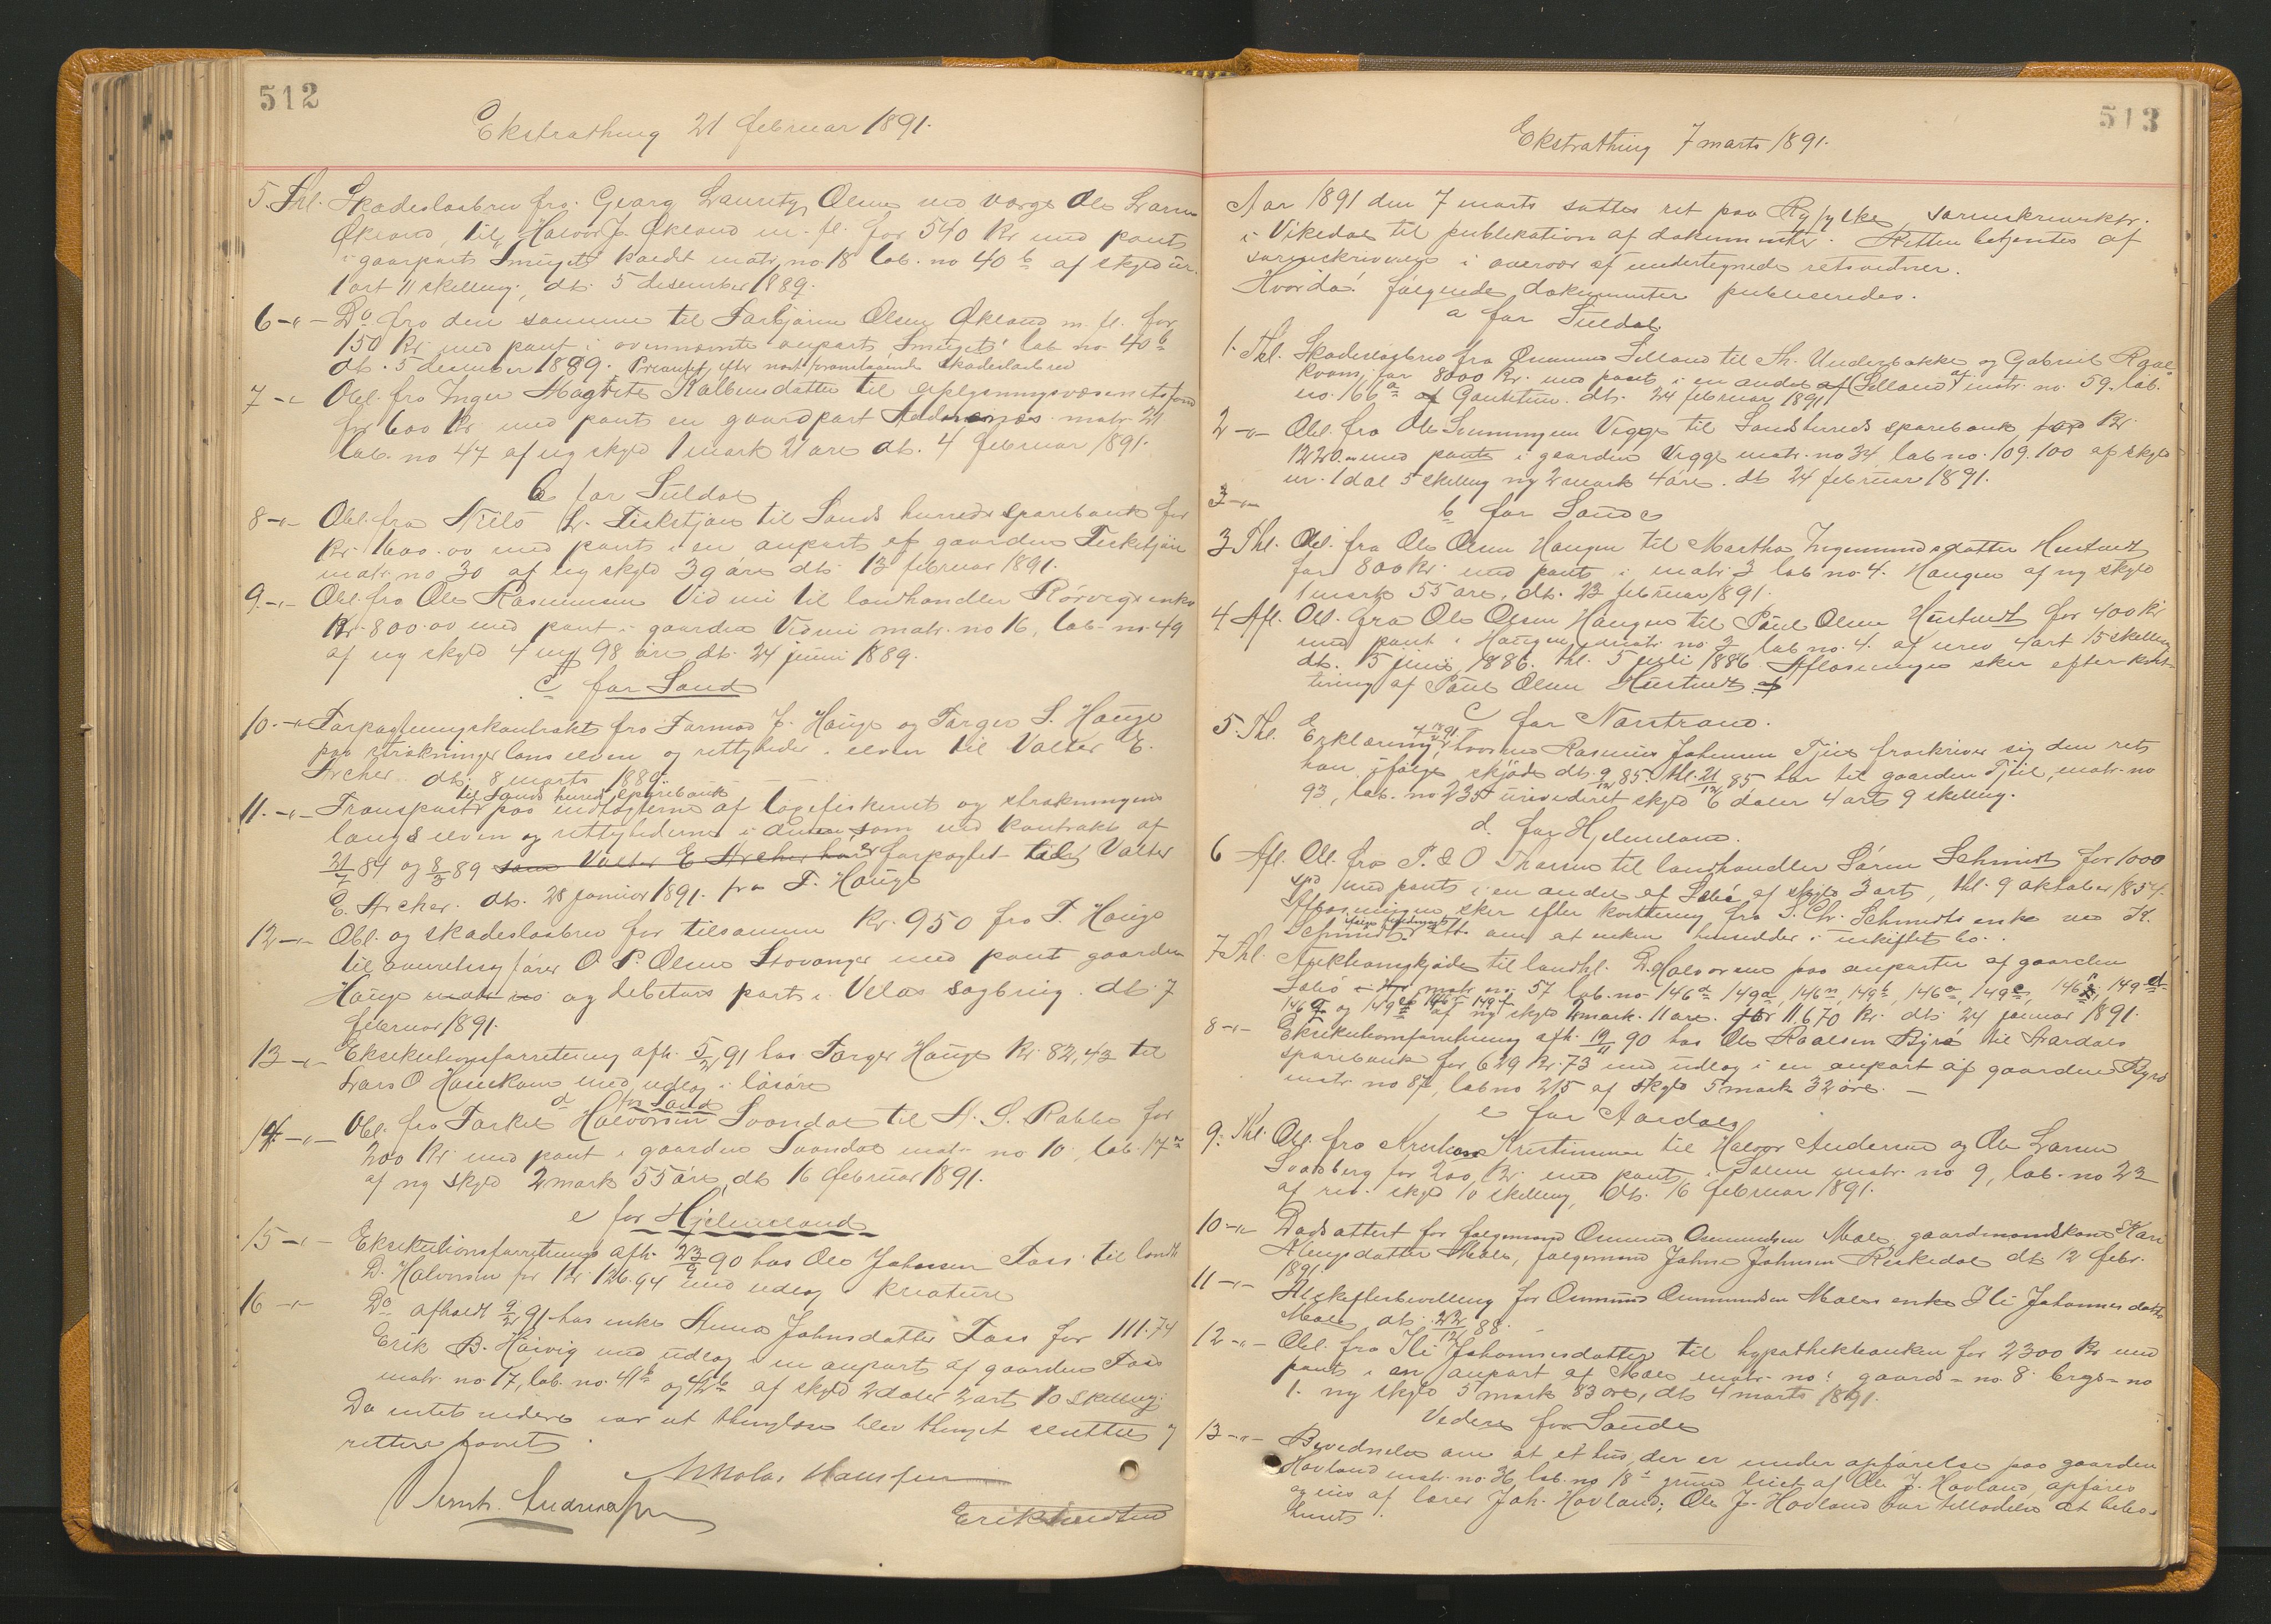 512
Ekstrathing 21 februar 1891.
5. Thl. Skadeslosbrev fra Georg Lauritz Olsen med værge Ole Larsen
Økland, til Halvor J. Økland m. fl. for 540 Kr med pant
i gaardparts Smuget kaldt matr. no 18 lab. no 40 b af skyld ur.
1 ort 11 skilling, dt. 5 desember 1889.
6 -"- Do fra den samme til Torbjørn Olsen Økland m. fl. for
150 Kr med pant i ovennævnte anparts Smuget lab no 40 b
dt. 5 desember 1889. Prioritet efter næst foranstaaende skadeslosbrev
7 -"- Obl. fra Inger Magrete Kalbensdatter til Oplysningsvæsenets fond
for 600 Kr. med pant en gaardpart matr. 21
lab. no 47 af ny skyld 1 mark 21 øre dt. 4 februar 1891.
b for Suldal
8 -"- Obl. fra Nils L. Fisketjøn til Sands herreds sparebank for
Kr. 1600.00 med pant i en anpart af gaarden Fisketjøn
matr. no 30 af ny skyld 39 øre dt. 13 februar 1891.
9 -"- Obl. fra Ole Rasmussen Vidmi til landhandler Rörvigs enke
Kr. 800.00 med pant i gaarden Vidmi matr. no 16, lab. no 49
af ny skyld 4 98 øre dt. 24 juni 1889.
c for Sand
10 -"- Forpagtningskontrakt fra Tormod J. Hauge og Torger S. Hauge
paa strækninger lans elven og rettigheder i elven til Valter E.
Archer. dt. 8 marts 1889.
til Sands herred sparebank
11 -"- Transport paa indtægterne af lagsfiskeriet og strækningen
langs elven og rettighederne i denne som ved kontrakt af
21/7 84 og 8/3 89 som Valter E Archer har er forpagtet til Valter
E. Archer. dt. 28 januar 1891. fra T. Hauge
12 -"- Obl. og skadeslosbrev for tilsammen Kr. 950 fra T. Hauge
til overretssagfører O. P. Olsen Stavanger med pant gaarden
Hauge matr no og debitors parts i Velas sagbrug. dt. 7
februar 1891.
13 -"- Eksekutionsforretning afh. 5/2 91 hos Torger Hauge Kr. 82,43 til
Lars O med udlæg i løsøre
d for Sand
14 -"- Obl. fra Torkel Halvorsen Svandal til A. S. Rabbe for
200 Kr med pant i gaarden Svandal matr no 10, lab. 17 a
af ny skyld 2 mark 55 øre, dt 16 februar 1891.
e for Hjelmeland
15 -"- Eksekutionsforretning afh. 23/9 90 hos Ole Johnsen Foss til landh.
D. Halvorsen for Kr. 126.94 med udlæg kreaturer
16 -"- Do afholdt 9/2 91 hos enke Anna Johnsdatter Foss for 111.74
Erik B. Haavig med udlæg i en anparts af gaarden Foss
matr. no. 17, lab. no. 41 b og 42 b af skyld 2 daler 3 ort 10 skilling.
Da intet videre var at thinglæse blev thinget sluttet og
retten hævet.
Nikolai Hansen
Bernt. Andreassen
Erik Knudsen
513
Ekstrathing 7 marts 1891.
Aar 1891 den 7 marts sattes ret paa Ryfylke sorenskriverktr.
i Vikedal til publikation af dokumenter. Retten betjentes af
sorenskriveren i overvær af undertegnede retsvidner.
Hvorda! følgende dokumenter publiseredes.
a for Suldal.
1. Thl. Skadeslosbrev fra Ommund Lilland til Th. Underbakke og Gabriel Roal-
kvam for 8000 Kr. med pant i en andel af Lilland af matr. no. 59. lab.
no. 166 a af Gautetun. dt. 24 februar 1891
2 -"- Obl. fra Ole Sveinungsen Vegge til Sands herreds sparebank for Kr.
1220.- med pant i gaarden Vegge matr. no 34 lab no. 109. 100 af skyld
ur. 1 dal 5 skilling ny 2 mark 4 øre. dt 24 februar 1891.
3 -"-
b for Sand
3 Thl. Obl. fra Ole Olsen Haugen til Martha Ingemundsdatter Hustvedt
for 800 Kr. med pant i matr. 3 lab no. 4. Haugen af ny skyld
1 mark 55 øre, dt. 23 februar 1891.
4 Afl. Obl. fra Ole Olsen Haugen til Poul Olsen Hustvedt for 400 Kr
med pant i Haugen matr no. 3 lab no. 4. af urev 4 ort 15 skilling
dt. 15 juni 1886. thl. 5 juli 1886 Aflæsningen sker efter kvit-
tering af Poul Olsen Hustvedt. af
c for Nærstrand.
5. Thl. Erklæring 4/2 91 hvorved Rasmus Johnsen Tjul fraskriver sig den ret
han ifølge skjøde dt. 9/12 85. thl. 21/12 85 har til gaarden Tjul, matr. no
93, lab. no 235 urevideret skyld 6 daler 4 ort 9 skilling.
d. for Hjelmeland.
6 Afl. Obl. fra P. & O Thorsen til landhandler Søren Schmidt for 1000
spd med pant i en andel af Sabø af skyld 3 ort, thl. 9 oktober 1854.
Aflæsningen sker efter kvittering fra S. Chr. Schmidts enke ved K.
Schmidt. att. om at enken hensidder i uskiftet bo.
7 Thl. Auktionsskjøde til landhl. D. Halvorsen paa anparter af gaarden
Sabø matr no. 57 lab. no. 146 d 149 a, 146 n, 149 b, 146 o, 149 c, 146 p, 149 d
146 q og 149 e 146 r 149 f af ny skyld 2 mark. 11 øre. for 11.670 Kr. dt. 24 januar 1891.
8 -"- Eksekutionsforretning afh. 12/11 90 hos Ole Roalsen Bjrø til Aardals
sparebank for 629 Kr. 73 med udlæg i en anpart af gaarden
matr no 87, lab no 215 af skyld 5 mark 32 øre. -
e for Aardal
9. Thl. Obl. fra Kristensen til Halvor Andersen og Ole Larsen
Svadberg for 200 Kr. med pant i matr. no 9, lab. no 23
af rev. skyld 10 skilling, dt. 16 februar 1891.
10 -"- Dødsattest for følgemand Ommund Ommundsen Mæle, gaardmandskone Kari
datter Mæle, følgemand John Johnsen Riskedal dt 12 febr.
1891
11 -"- Uskiftebevilling for Ommund Ommundsen Mæles enke Ili Johannesdatter
Mæle dt. 22/12 88.
12 -"- Obl. fra Ili Johannesdatter til hypothekbanken for 2300 Kr med
pant i en anpart af Mæle matr. no: gaards-no 8. brgs-no
1. ny skyld 5 mark 83 øre, dt 4 marts 1891.
Videre for Sand
13 -"- Bevidnelse om at et hus, der er under opførelse paa gaarden
Hovland matr. no 36 lab. no 18 grund leiet af Ole J. Hovland, opføres
og eies af lærer Joh. Hovland; Ole J. Hovland har tilladelse at bebo
huset.